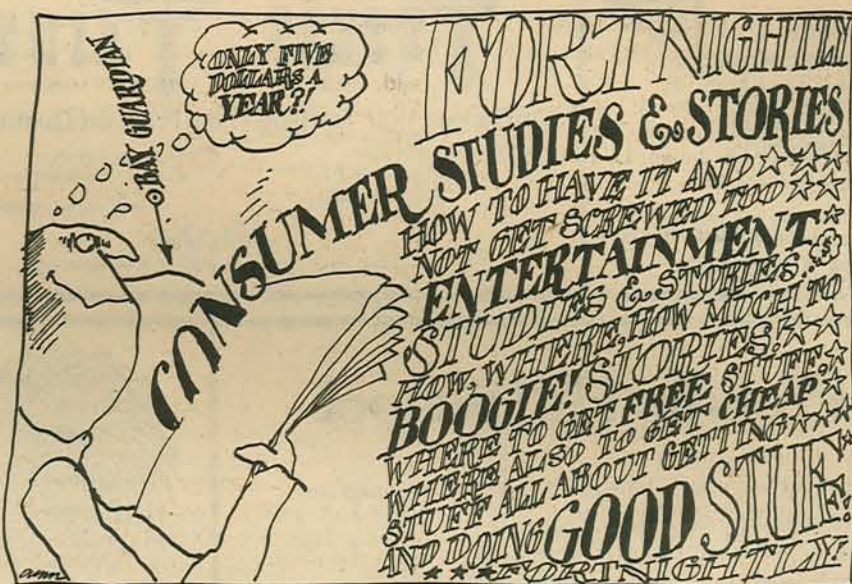 BAY GUARDIAN
ONLY FIVE
DOLLARS A
YEAR?!
FORTNIGHTLY
CONSUMER STUDIES & STORIES
HOW TO HAVE IT AND
NOT GET SCREWED TOO
ENTERTAINMENT
STUDIES & STORIES.
HOW, WHERE, HOW MUCH TO
BOOGIE! STORIES.
WHERE TO GET FREE STUFF,
WHERE ALSO TO GET CHEAP
STUFF ALL ABOUT GETTING
AND DOING GOOD STUFF.
FORTNIGHTLY!